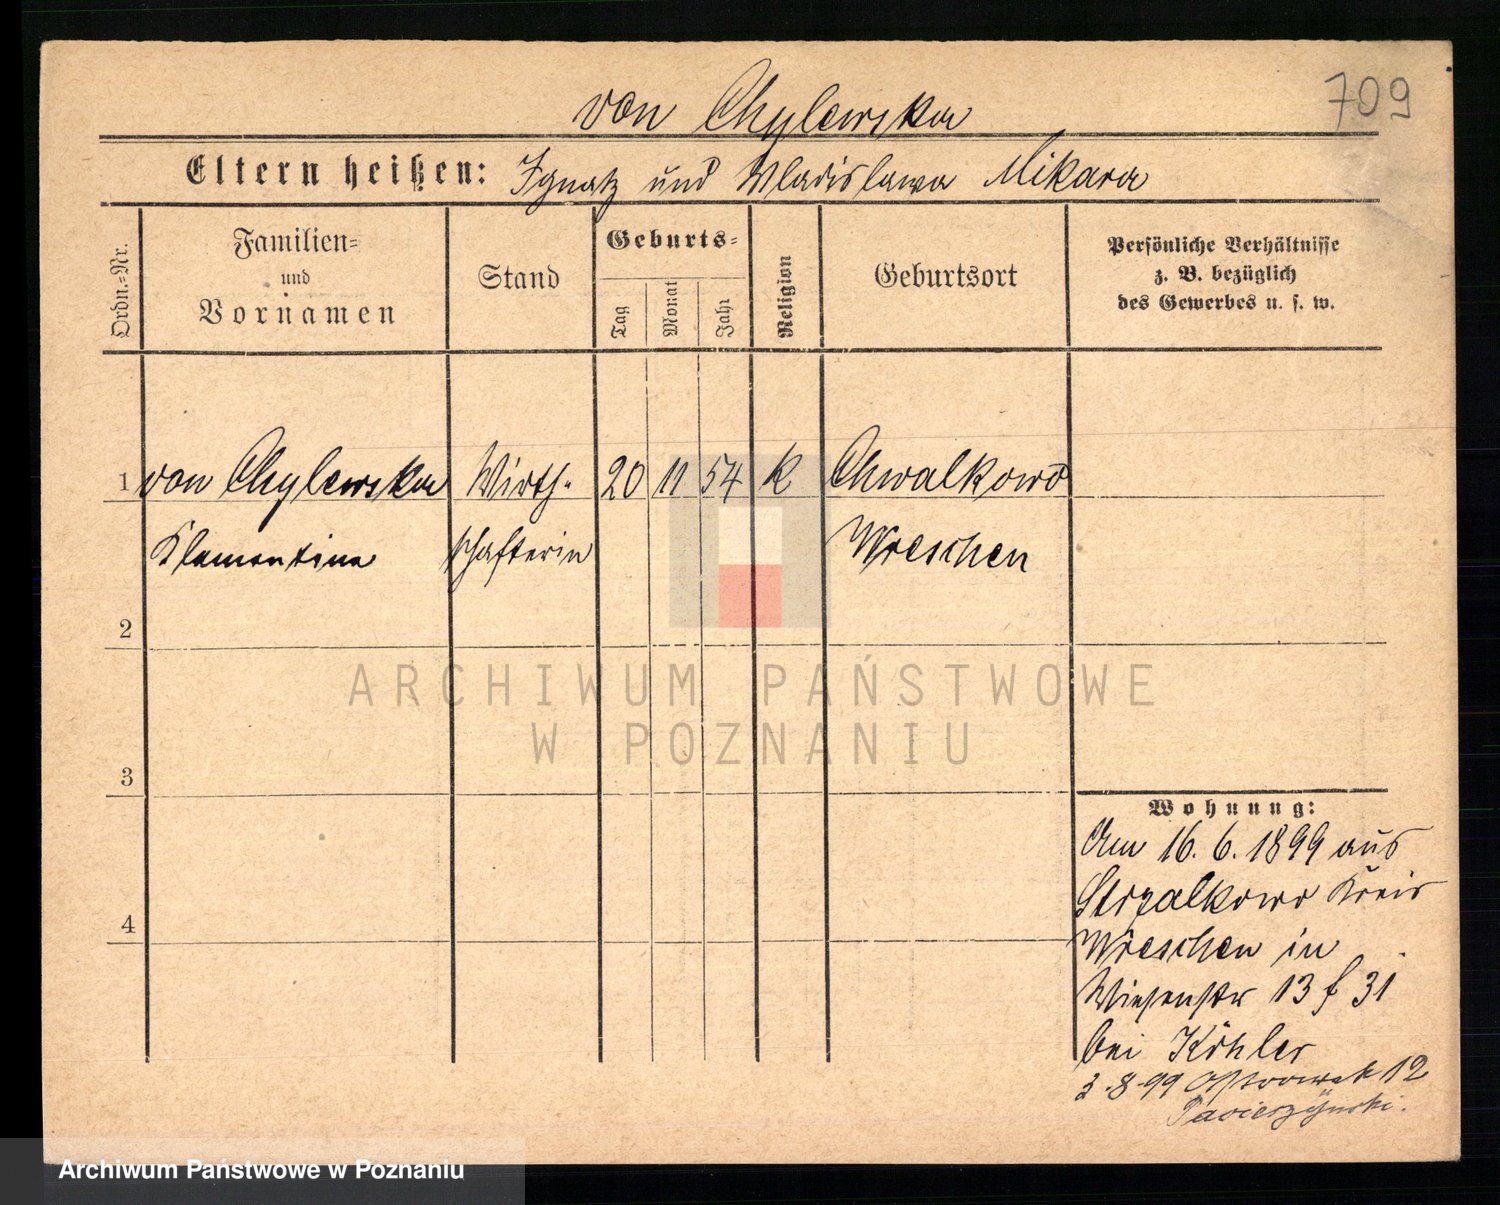 709
von Chylewska
Eltern heißen: Ignatz und Wladislawa Mikara
Ordn.-Nr.
Familien-
und
Vornamen
Stand
Geburts-
Tag
Monat
Jahr
Religion
Geburtsort
Persönliche Verhältnisse
z. B. bezüglich
des Gewerbes u. s. w.
1 von Chylewska Wirth- 20 11 54 K Chwalkowo
Klementine schafterin Wreschen
2
ARCHIWUM PAŃSTWOWE
W POZNANIU
3
Wohnung:
Am 16. 6. 1899 aus
Strzalkowo Kreis
4
Wreschen in
Wiesenstr 13 f 31
bei Köhler
3.8.99 Ostrowek 12
Archiwum Państwowe w Poznaniu